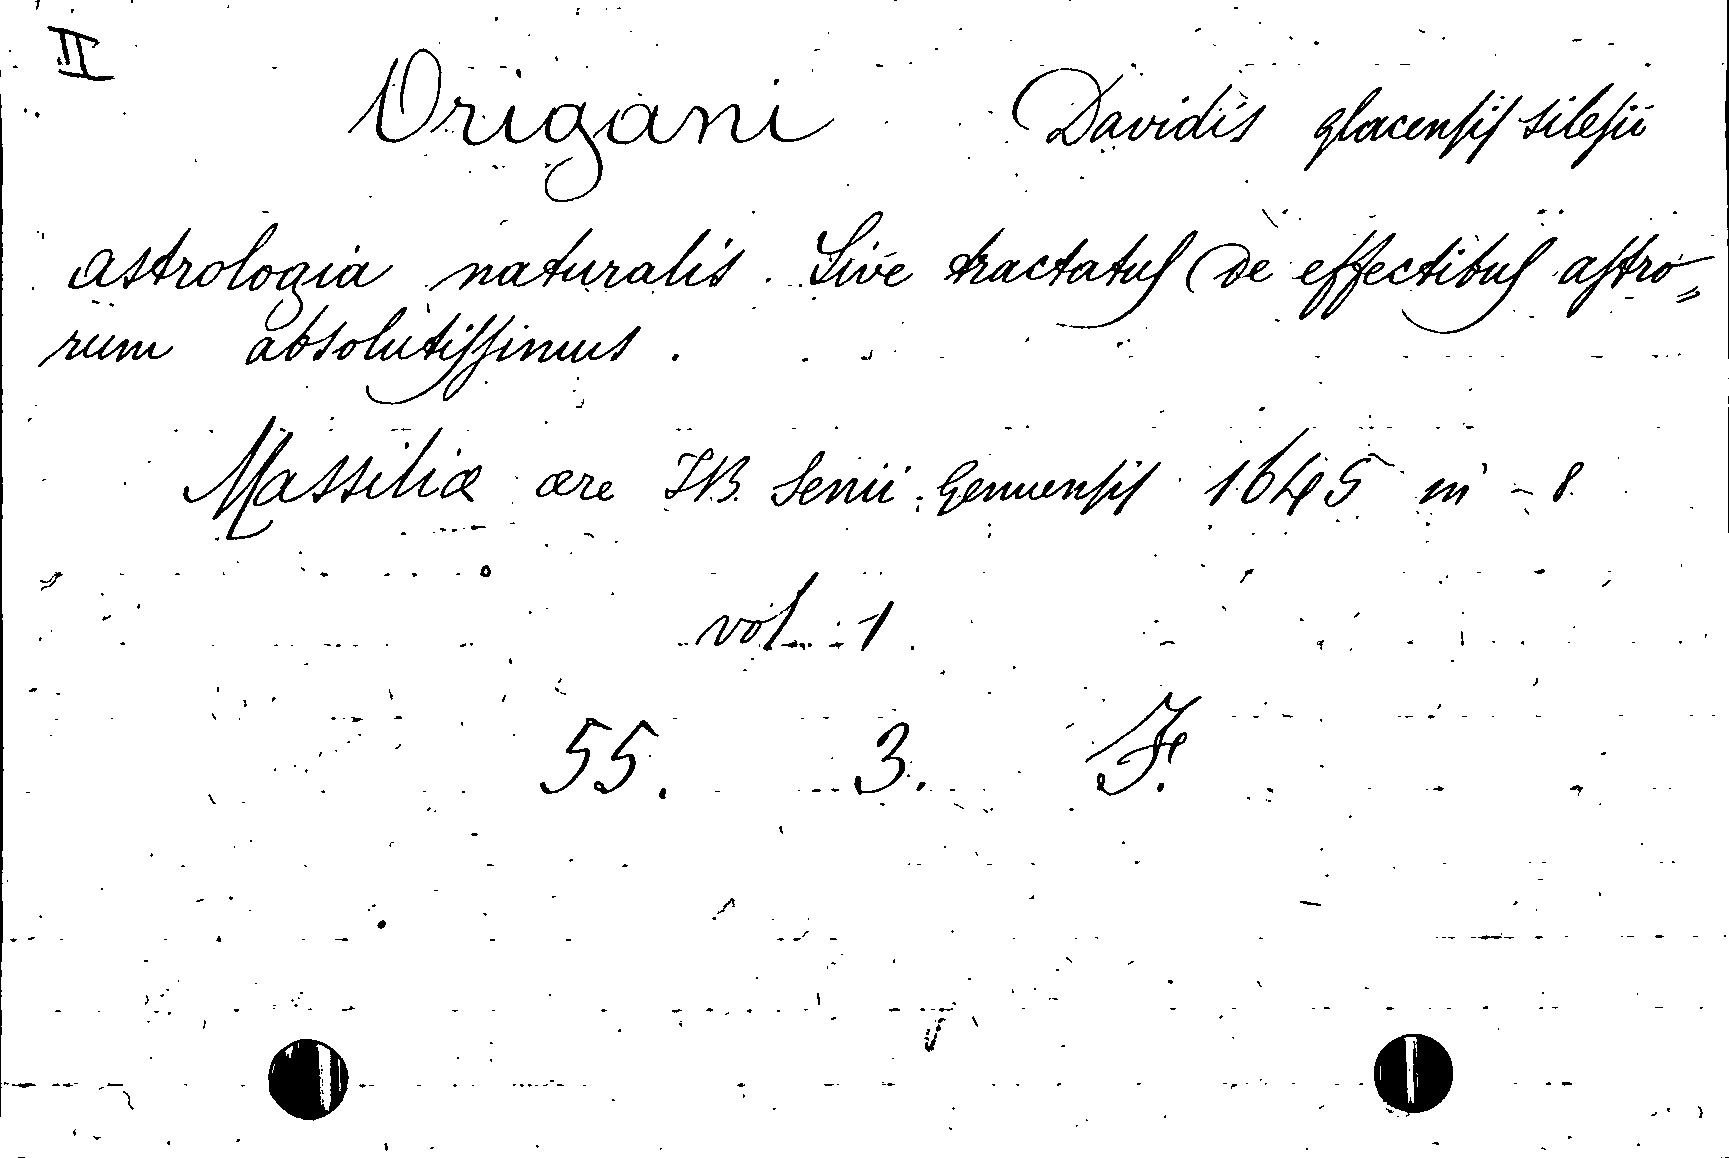 II
Origani Davidis glacensis silesii
astrologia naturalis. Sive tractatus de effectibus astro=
rum absolutissimus.
Massiliæ ære J.B. Senii. genuensis 1645 in - 8
vol 1
55. 3. F.